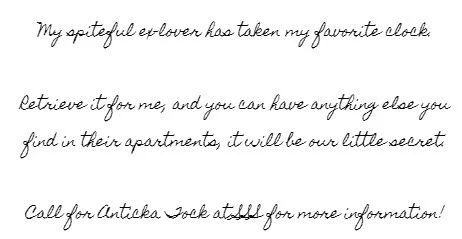 My spiteful ex-lover has taken my favorite clock.
Retrieve it for me, and you can have anything else you
find in their apartments, it will be our little secret.
Call for Anticka Tock at SSS for more information!